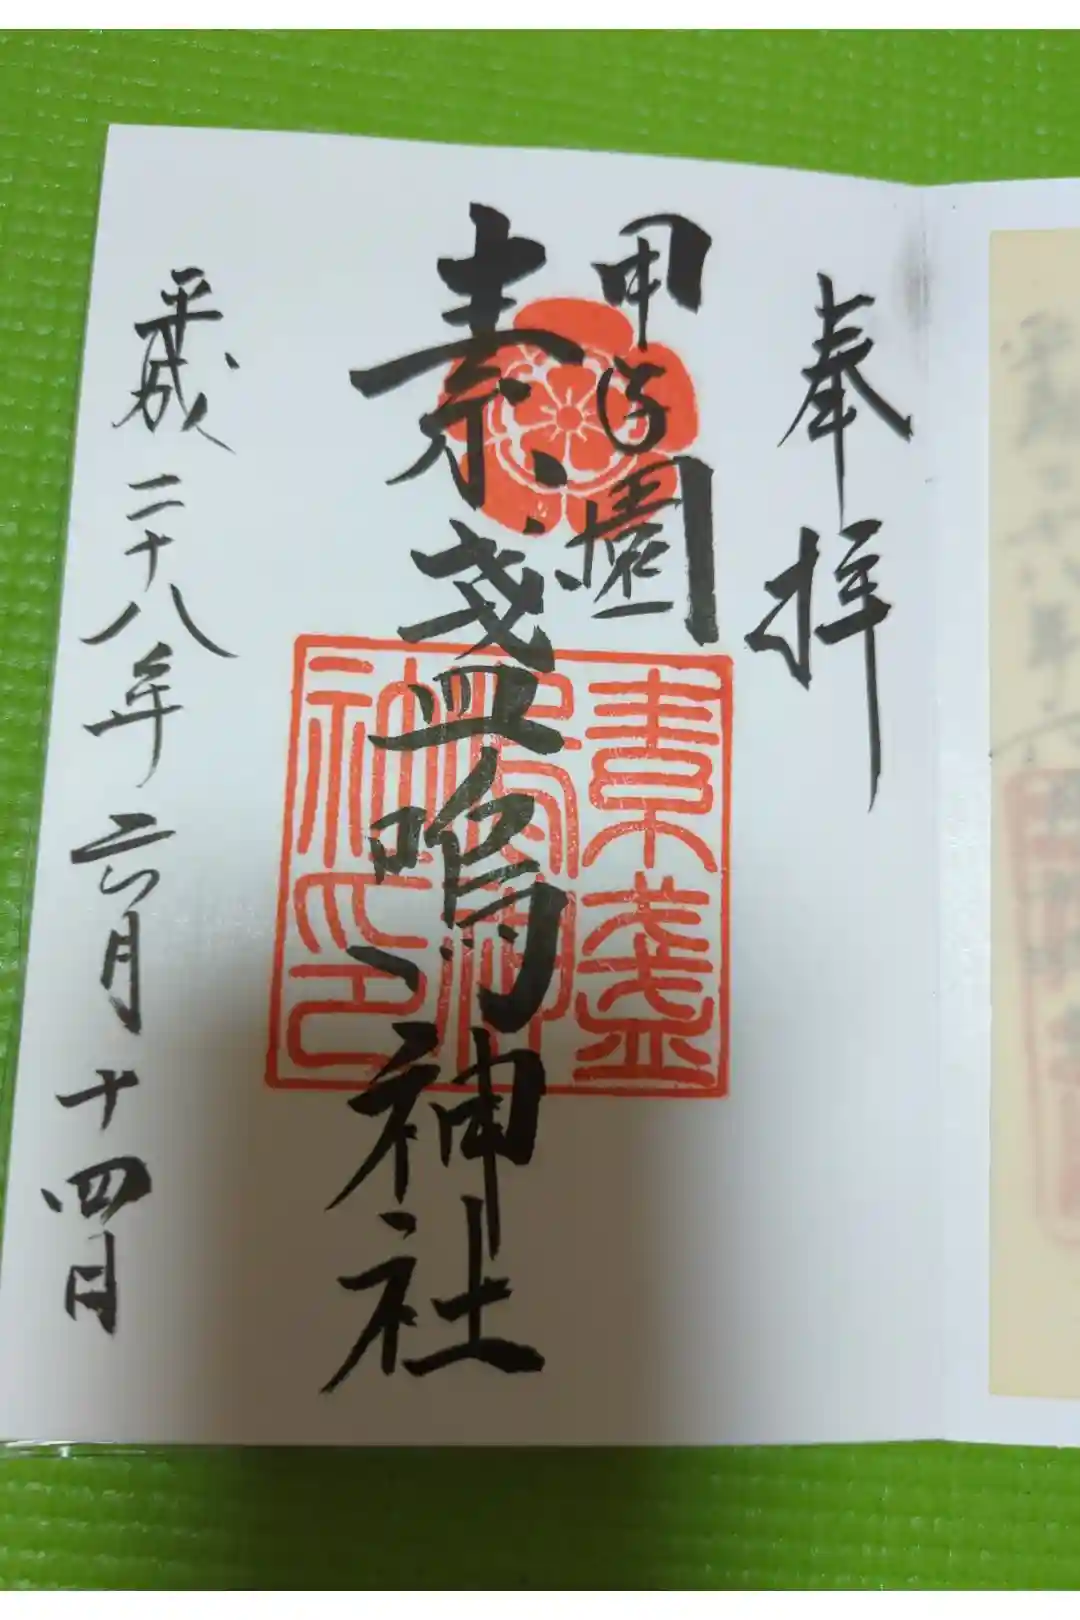 奉拝
甲子園
素盞嗚神社
素盞
嗚神
社印
平成二十八年六月十四日